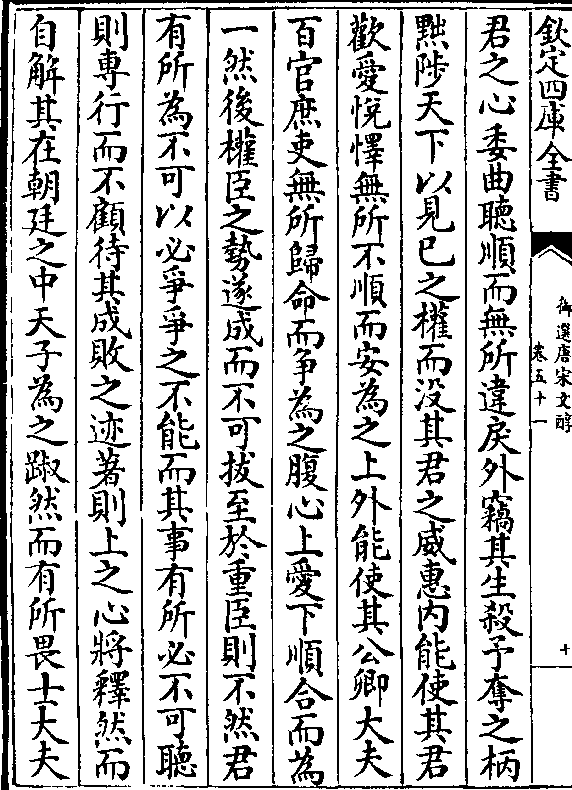 欽定四庫全書
御選唐宋文醇
卷五十一
十
君之心委曲聽順而無所違戾外竊其生殺予奪之柄
黜陟天下以見已之權而没其君之威惠内能使其君
歡愛悅懌無所不順而安為之上外能使其公卿大夫
百官庶吏無所歸命而爭為之腹心上愛下順合而為
一然後權臣之勢遂成而不可拔至於重臣則不然君
有所為不可以必爭爭之不能而其事有所必不可聽
則專行而不顧待其成敗之迹著則上之心將釋然而
自解其在朝廷之中天子為之踧然而有所畏士大夫